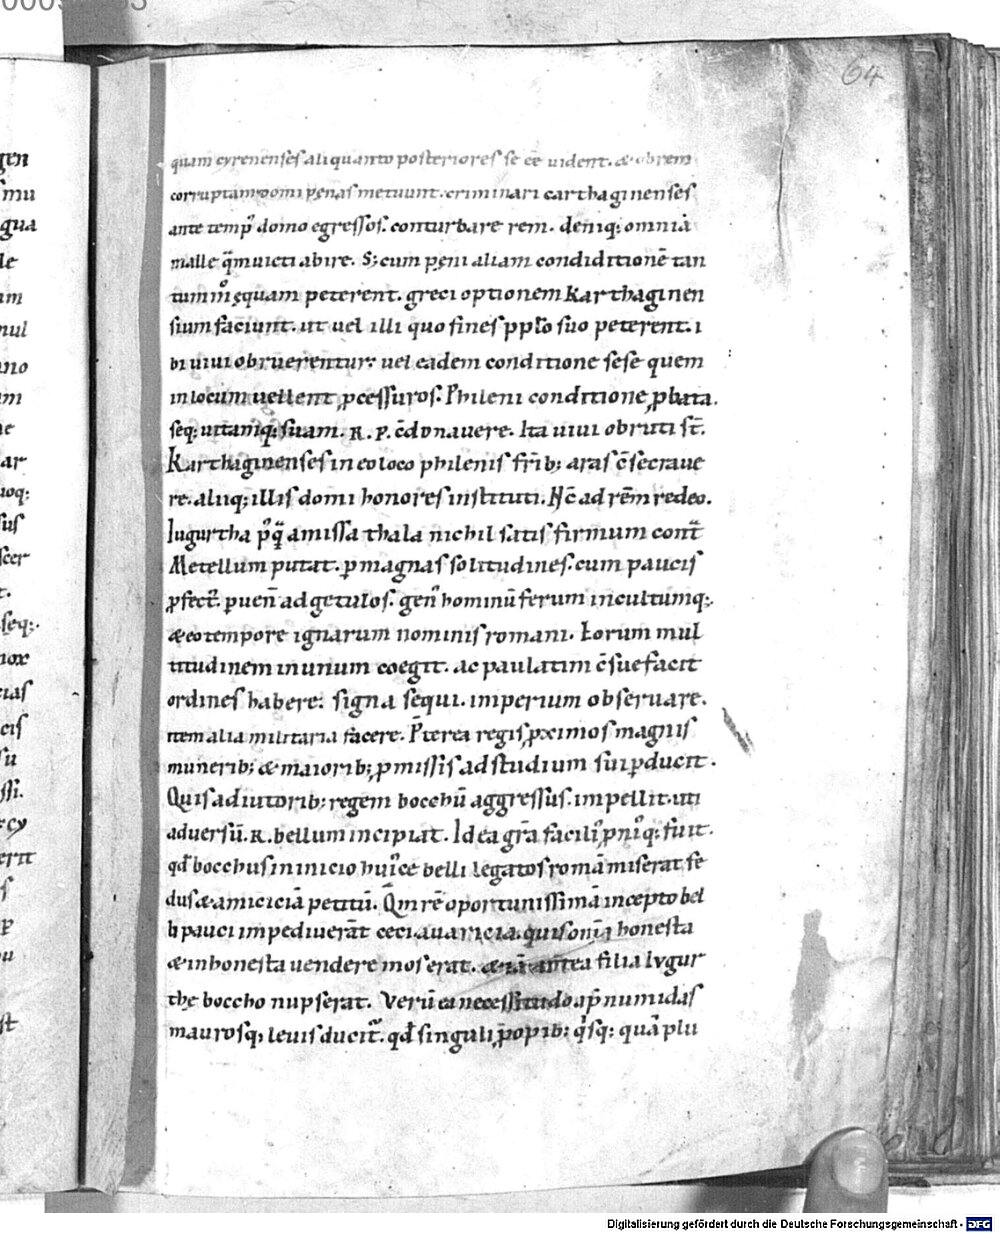 64
quam cyrenenses aliquanto posteriores se eē uident. & obrem
corruptam domi penas metuunt. criminari carthaginenses
ante temp⁹ domo egressos. conturbare rem. deniq; omnia
malle q̄m uicti abire. S; cum pęni aliam condiditionē tan
tum m̊ ęquam peterent. greci optionem Karthaginen
sium faciunt. ut uel illi quo fines pplo suo peterent. i
bi uiui obruerentur: uel eadem conditione sese quem
in locum uellent ꝓcessuros. Phileni conditione ꝓbata.
seq; uitamq; suam. R. P. c̄donauere. Ita uiui obruti st̄.
Karthaginenses in eo loco philenis fr̄ib; aras c̄secraue
re. aliiq; illis domi honores instituti. Nc̄ ad rēm redeo.
Iugurtha p⁹q̄ amissa thala nichil satis firmum cont̄
Metellum putat. ꝑ magnas solitudines. cum paucis
ꝓfect⁹. ꝑuen̄ ad getulos. gen⁹ hominū ferum incultumq;.
& eo tempore ignarum nominis romani. Eorum mul
titudinem in unum coegit. ac paulatim c̄suefacit
ordines habere: signa sequi. imperium obseruare.
item alia militaria facere. P̄terea regis ꝓximos magnis
munerib; & maiorib; ꝓmissis ad studium sui ꝑducit.
Quis adiutorib; regem bocchū aggressus. impellit. uti
aduersū. R. bellum incipiat. Id ea gr̄a facili⁹ ꝓni⁹q; fuit.
qd̄ bocchus in inicio huı⁹ce belli legatos romā miserat fe
dus & amiciciā petitū. Qm̄ rē oportunissimā incepto bel
li pauci impediuerāt ceci auaricia. quis om̄ia honesta
& inhonesta uendere mos erat. & iā antea filia Iugur
the boccho nupserat. Verū ea necessitudo ap̄ numidas
maurosq; leuis ducit̄. qd̄ singuli ꝓ opib; q̇sq; quā plu
Digitalisierung gefördert durch die Deutsche Forschungsgemeinschaft - DFG